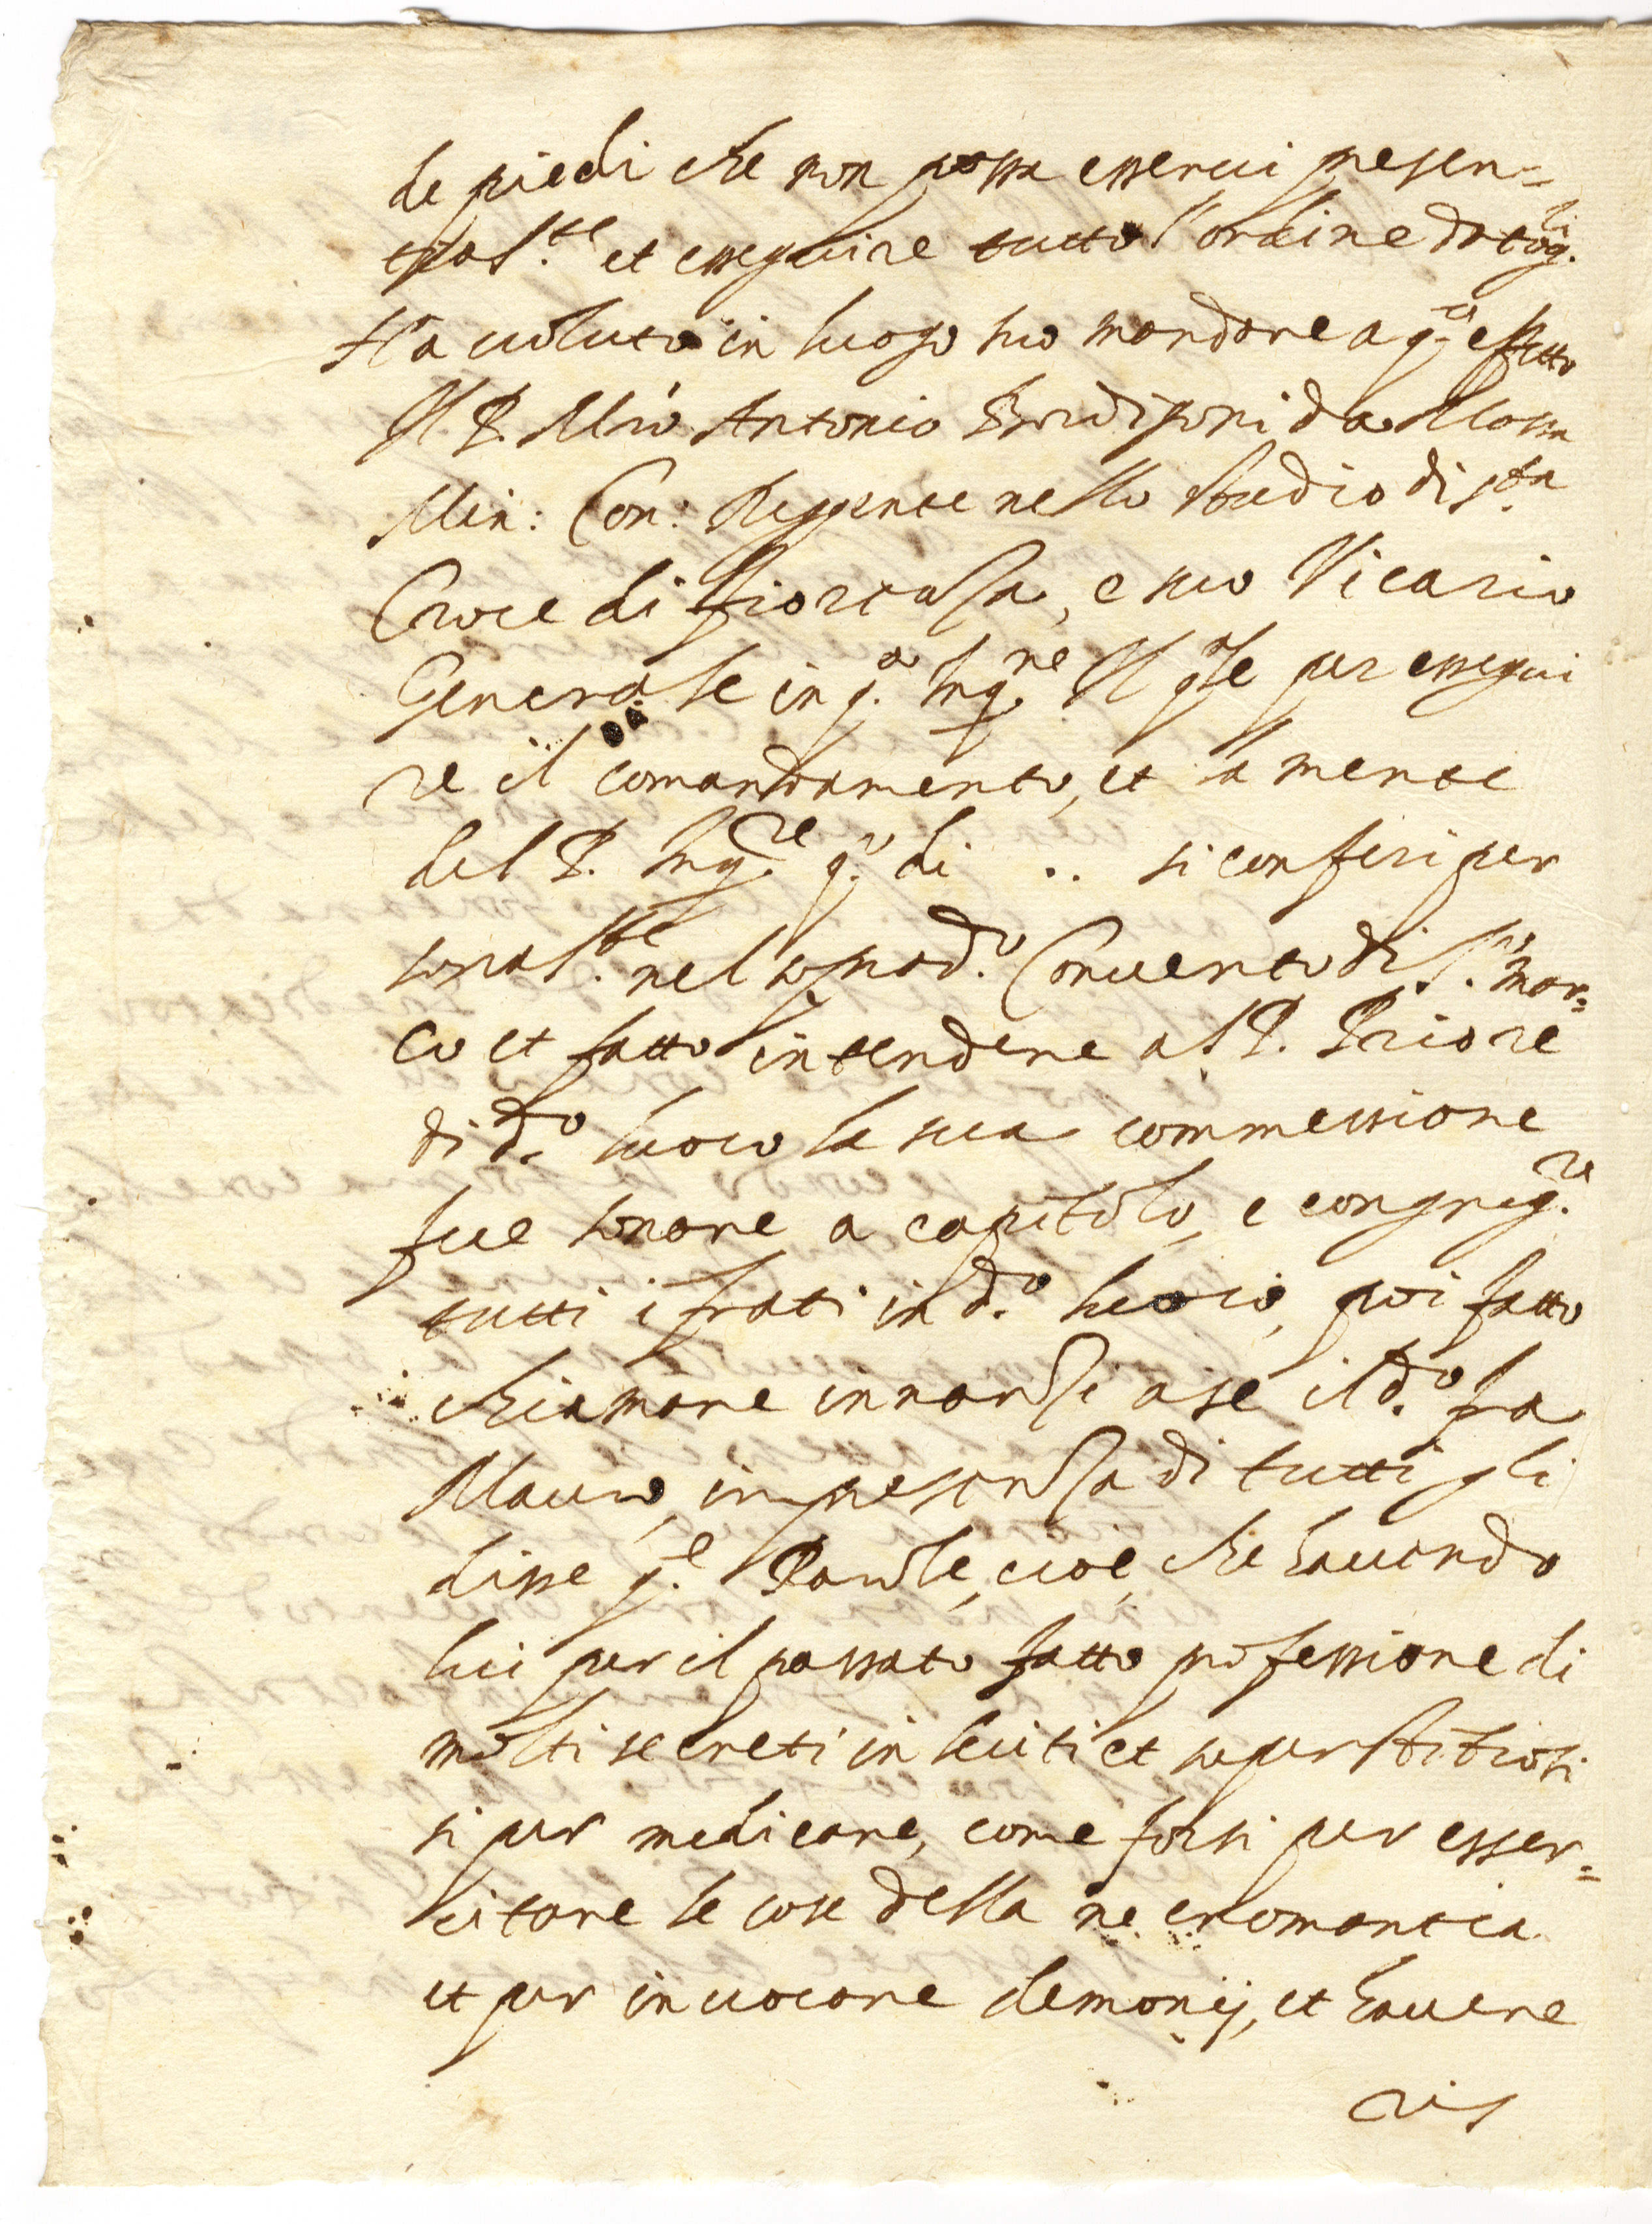 de piedi che non possa esserui presen=
tialte et esseguire tutto l'ordine datogli.
Ha uoluto in luogo suo mandare a qto effetto
Il P. Mro Antonio da Massa
Min: Con: Reggente nello studio di sta
Croce di Fiorenza, e suo Vicario
Generale in qa Inqne Il qle per essegui
re il comandamento, et la mente
del P. Inqre qo di .. si conferi per
sonalte nel soprado Conuento di S. Mar=
co et fatto intendere al P. Priore
di do luoco la sua commessione
fue sonare a capitolo, e congregre
tutti i frati in do luoco, poi fatto
chiamare innanzi a se il do fra
Mauro, in presenza di tutti gli
disse qe Parole, cioè, che hauendo
lui per il passato fatto professione di
molti secreti inleciti et superstitiosi
si per medicare, come forsi per esser=
citare le cose della necromantia
et per inuocare demonij, et hauere
ris